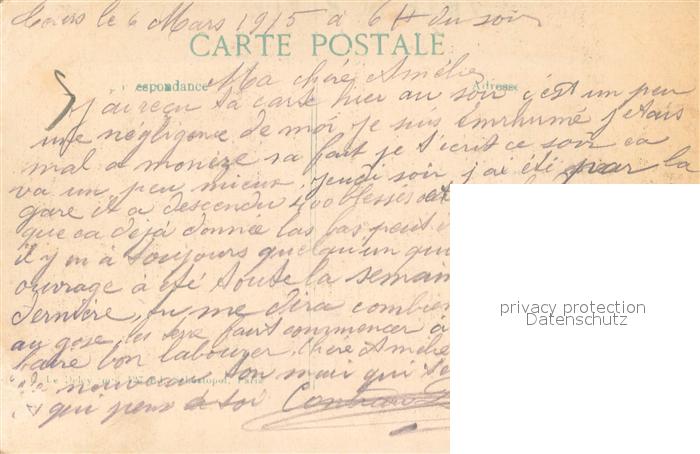 le 6 Mars 1915 a 6 H du soir
CARTE POSTALE
espondance Ma chére Amélie Adresse
J'ai reçu ta carte hier au soir c'est un peu
une négligence de moi je suis enrhumé j'etais
mal a mon sa fait je t'ecrit ce soir ca
va un peu mieux Jeudi soir j'ai été par la
gare il a descendu 400 blessés
que ca dejà donnée las bas
il y en a toujours quelqu'un qui
ouvrage à été toute la seman
dernière, tu me dira combien
au gose, les faut commencer a
faire bon labourer, Chére Amélie
son mari qui
qui pense à toi
privacy protection
Datenschutz